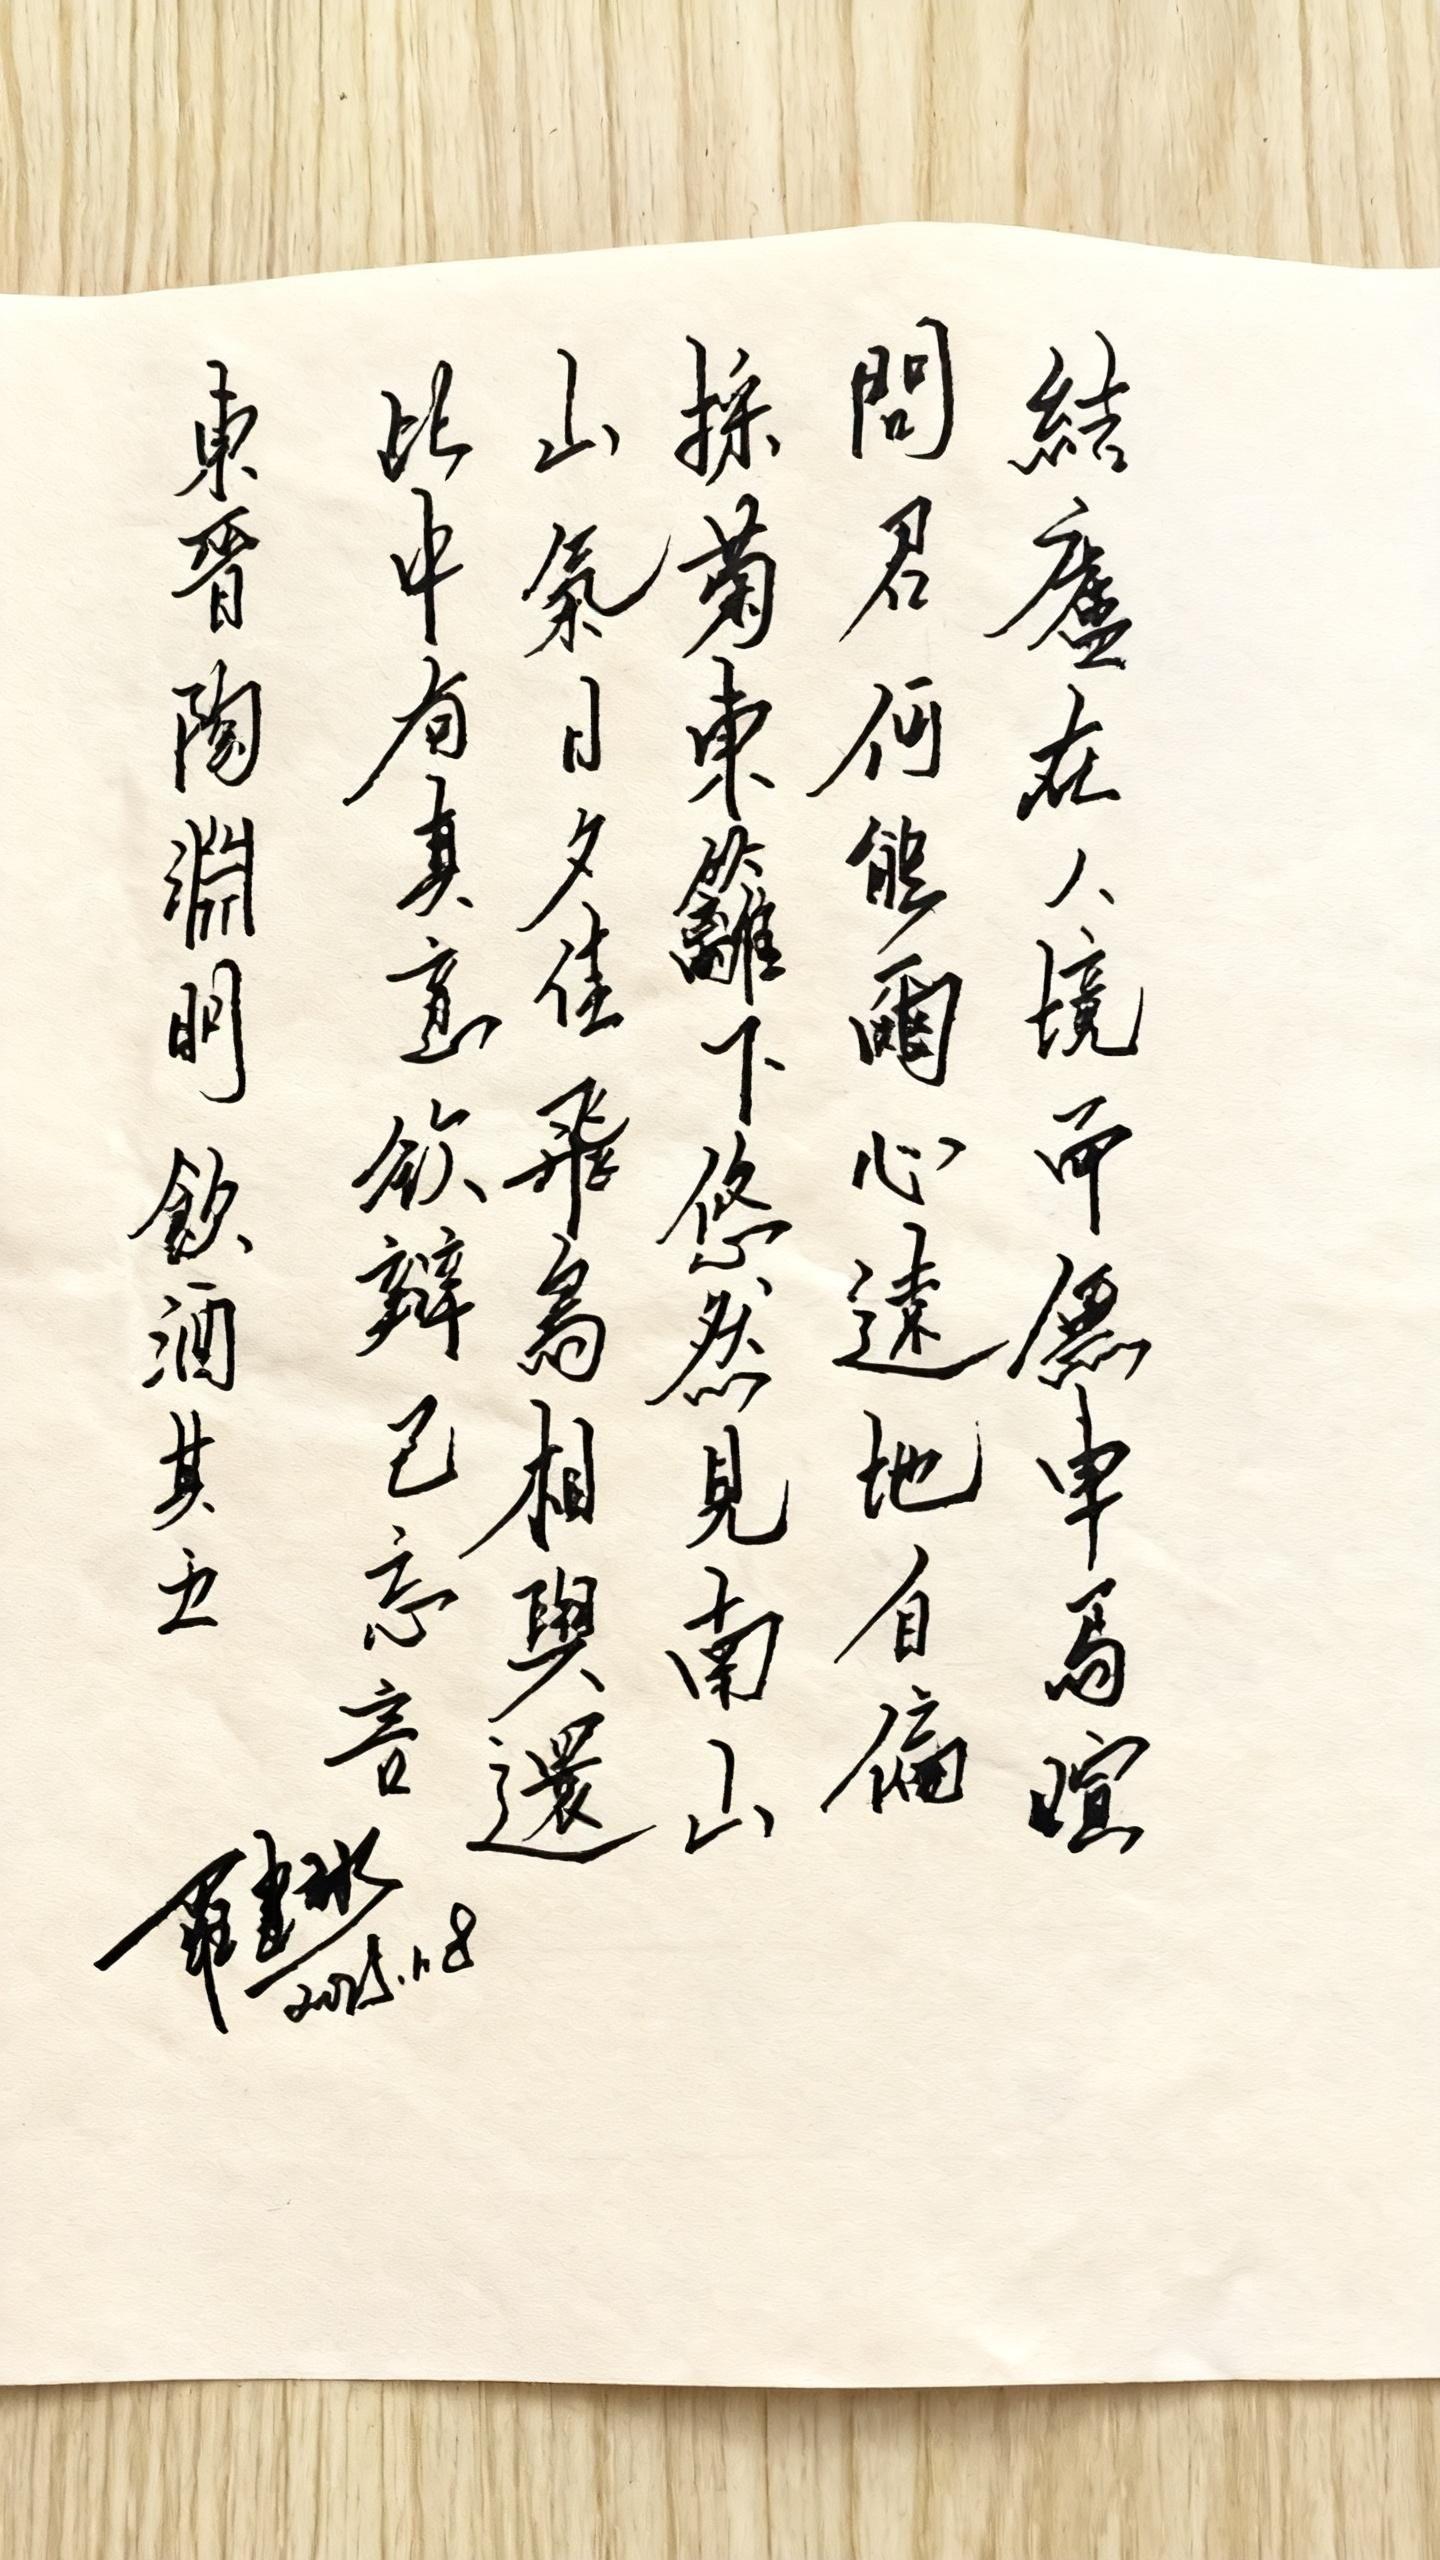 結廬在人境而無車馬喧
問君何能爾心遠地自偏
採菊東籬下悠然見南山
山氣日夕佳飛鳥相與還
此中有真意欲辯已忘言
東晉陶淵明 飲酒其五